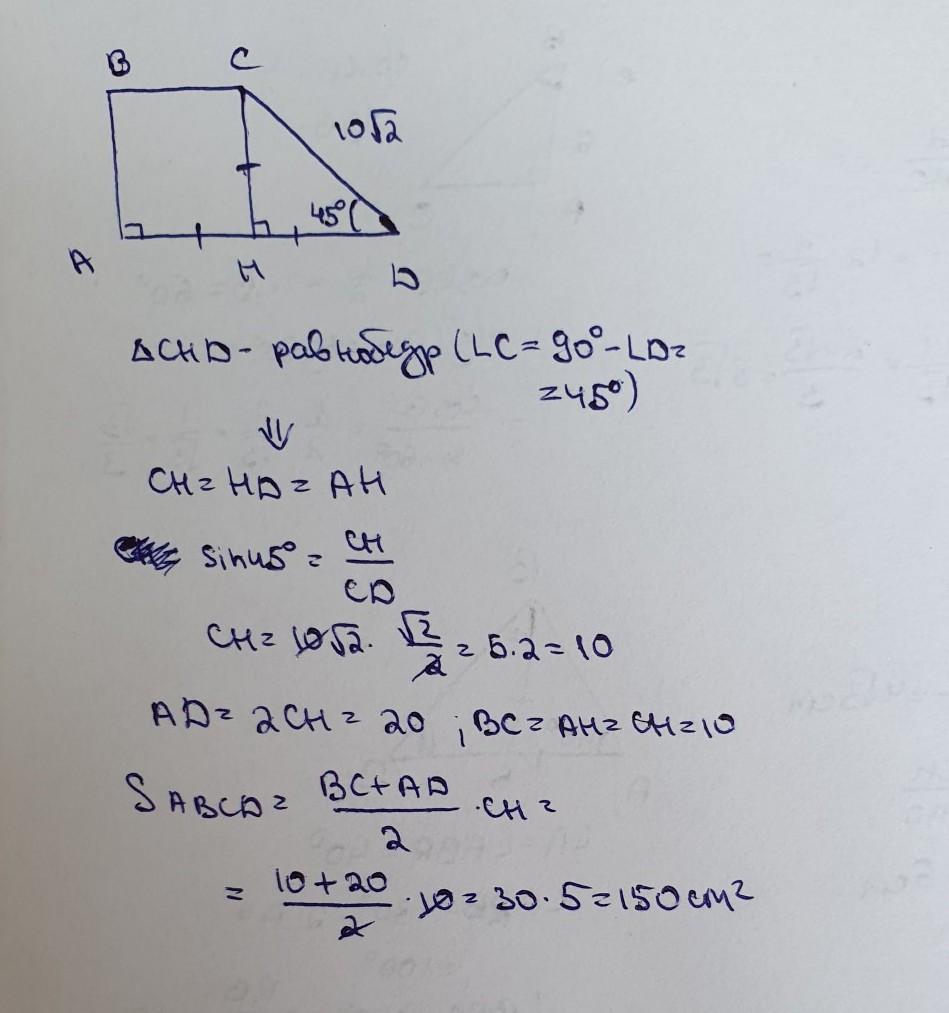 B C
10√2
45°
A H D
△CHD - равнобедр (∠C = 90° - ∠D =
= 45°)
⇓
CH = HD = AH
sin45° = CH/CD
CH = 10√2 · √2/2 = 5·2 = 10
AD = 2CH = 20 ; BC = AH = CH = 10
S ABCD = (BC + AD)/2 · CH =
= (10 + 20)/2 · 10 = 30 · 5 = 150 см²